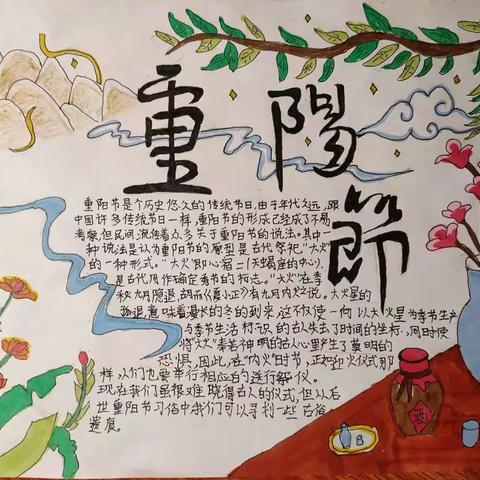 重陽節
重阳节是个历史悠久的传统节日,由于年代久远,跟
中国许多传统节日一样,重阳节的形成已经成了不易
考察,但民间流传着众多关于重阳节的说法。其中一
种说法是认为重阳节的原型是古代祭祀“大火”
的一种形式。“大火”即心宿二(天蝎座的中心),
是古代用作确定季节的标志。“大火”在季
秋九月隐退,故而《夏小正》有九月内火之说。大火星的
隐退,意味着漫长的冬的到来,这不仅使一向以大火星为季节生产
与季节生活标识的古人失去了时间的坐标,同时使
将“大火”奉若神明的古人心里产生了莫明的
恐惧,因此,在“内火”时节,正如迎火仪式那
样,人们也要举行相应的送行祭仪。
现在我们虽很难晓得古人的仪式,但从后
世重阳节习俗中我们可以寻找一些古俗
遗痕。
酒